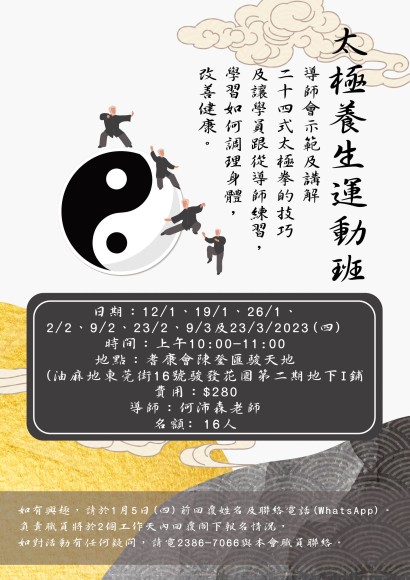 太極養生運動班
導師會示範及講解
二十四式太極拳的技巧
及讓學員跟從導師練習，
學習如何調理身體，
改善健康。
日期：12/1、19/1、26/1、
2/2、9/2、23/2、9/3及23/3/2023(四)
時間：上午10:00-11:00
地點：耆康會陳登匯駿天地
(油麻地東莞街16號駿發花園第二期地下I鋪
費用：$280
導師：何沛森老師
名額：16人
如有興趣，請於1月5日(四)前回覆姓名及聯絡電話(WhatsApp)，
負責職員將於2個工作天內回覆閣下報名情況，
如對活動有任何疑問，請電2386-7066與本會職員聯絡。